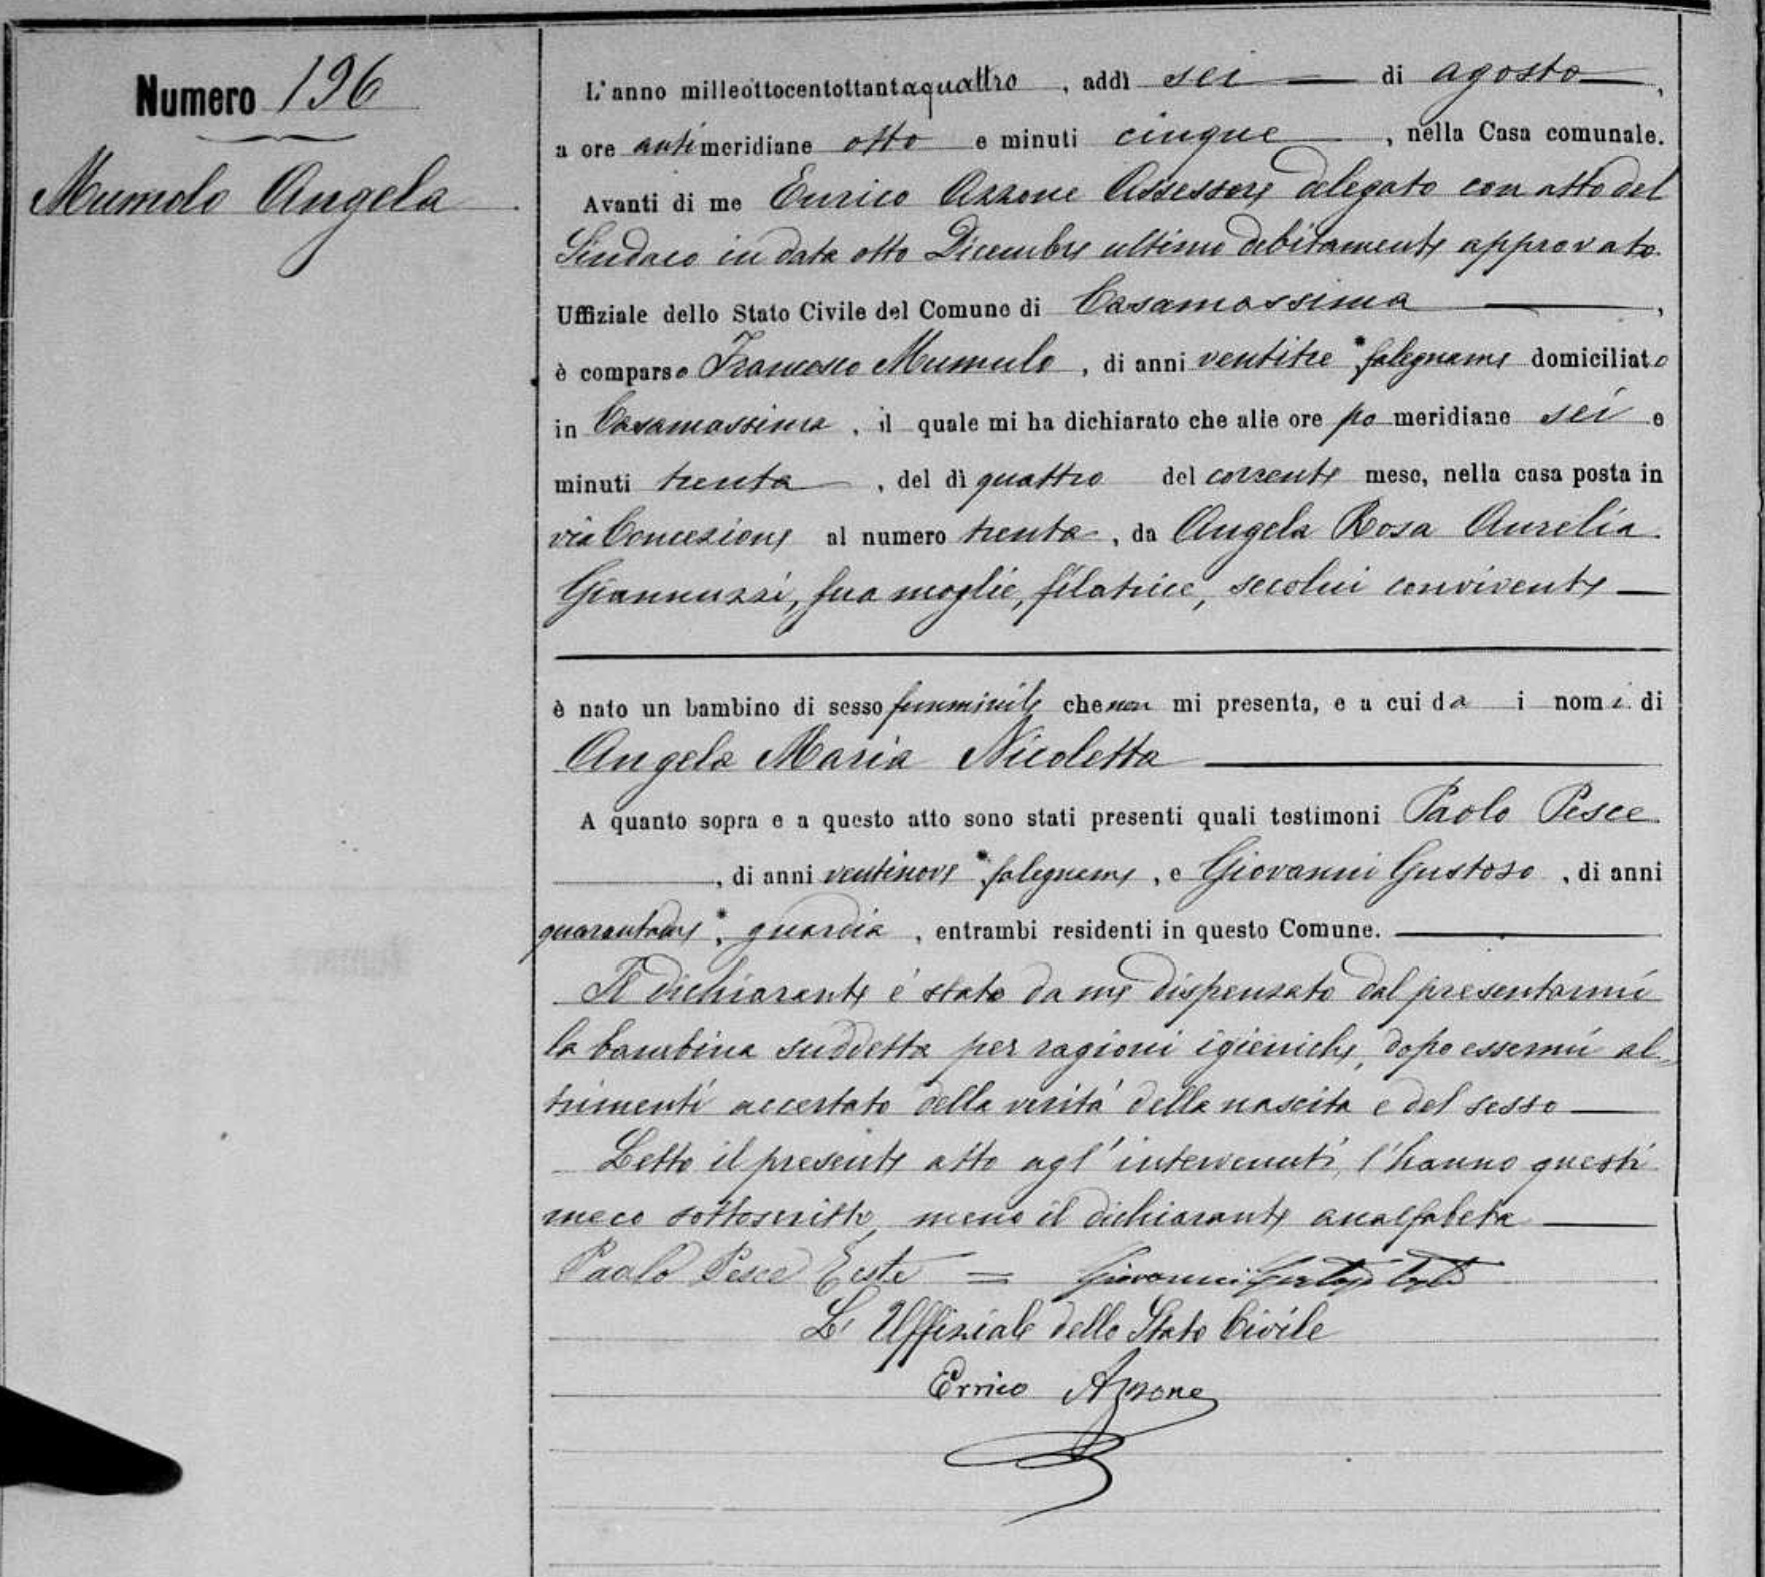 Numero 196
Mumolo Angela
L'anno milleottocentottantaquattro, addì sei di agosto,
a ore antimeridiane otto e minuti cinque, nella Casa comunale.
Avanti di me Enrico Azzone Assessore delegato con atto del
Sindaco in data otto Dicembre ultimo debitamente approvato
Uffiziale dello Stato Civile del Comune di Casamassima,
è comparso Francesco Mumulo, di anni ventitre falegname domiciliato
in Casamassima, il quale mi ha dichiarato che alle ore pomeridiane sei e
minuti trenta, del dì quattro del corrente mese, nella casa posta in
via Concezione al numero trenta, da Angela Rosa Aurelia
Giannuzzi, sua moglie, filatrice, secolui convivente
è nato un bambino di sesso femminile che non mi presenta, e a cui da i nomi di
Angela Maria Nicoletta
A quanto sopra e a questo atto sono stati presenti quali testimoni Paolo Pesce
, di anni ventinove falegname, e Giovanni Gustoso, di anni
quarantadue, guardia, entrambi residenti in questo Comune.
Il dichiarante è stato da me dispensato dal presentarmi
la bambina suddetta per ragioni igieniche, dopo essermi al-
trimenti accertato della verità della nascita e del sesso
Letto il presente atto agl'intervenuti, l'hanno questi
meco sottoscritto, meno il dichiarante analfabeta
Paolo Pesce Teste = Giovanni
L'Uffiziale dello Stato Civile
Errico Azzone